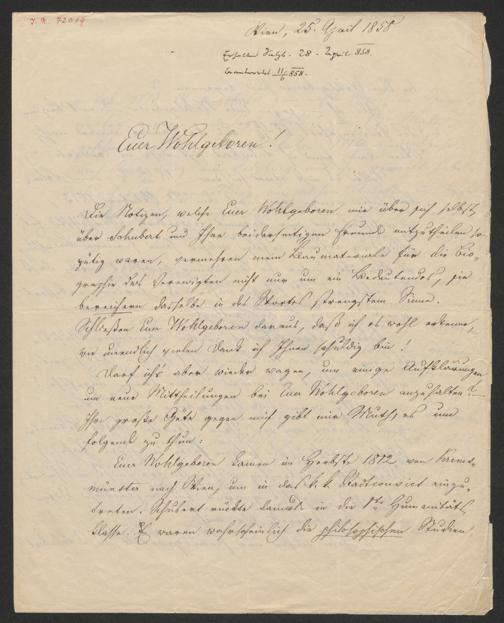 I. N. 72009
Wien, 25. April 1858
Erhalten Salzb. 28. April 858.
beantwortet 11/6 858.
Euer Wohlgeboren!
Die Notizen, welche Euer Wohlgeboren mir über sich selbst,
über Schubert und Ihre beiderseitigen Freunde mitzutheilen so
gütig waren, vermehren mein Baumateriale für die Bio-
graphie des Verewigten nicht nur um ein Bedeutendes, sie
bereichern dasselbe in des Wortes strengstem Sinne.
Schließen Euer Wohlgeboren daraus, daß ich es wohl erkenne,
wie unendlich vielen Dank ich Ihnen schuldig bin!
Darf ich's aber wieder wagen, um einige Aufklärungen
um neue Mittheilungen bei Euer Wohlgeboren anzuhalten?
Ihre große Güte gegen mich gibt mir Muth, es um
folgende zu thun:
Euer Wohlgeboren kamen im Herbste 1812 von Krems-
münster nach Wien, um in das k. k. Stadtconvict einzu-
treten. Schubert rückte damals in die 1te Humanitäts
Klasse. Es waren wahrscheinlich die philosophischen Studien